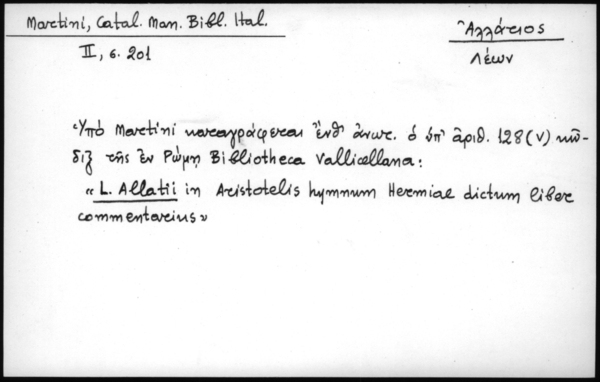 Martini, Catal. Man. Bibl. Ital.
II, σ. 201
Ἀλλάτιος
Λέων
Ὑπὸ Martini καταγράφεται ἔνθ' ἀνωτ. ὁ ὑπ' ἀριθ. 128 (V) κῶ-
διξ τῆς ἐν Ρώμῃ Bibliotheca Vallicellana:
« L. Allatii in Aristotelis hymnum Hermiae dictum liber
commentarius »